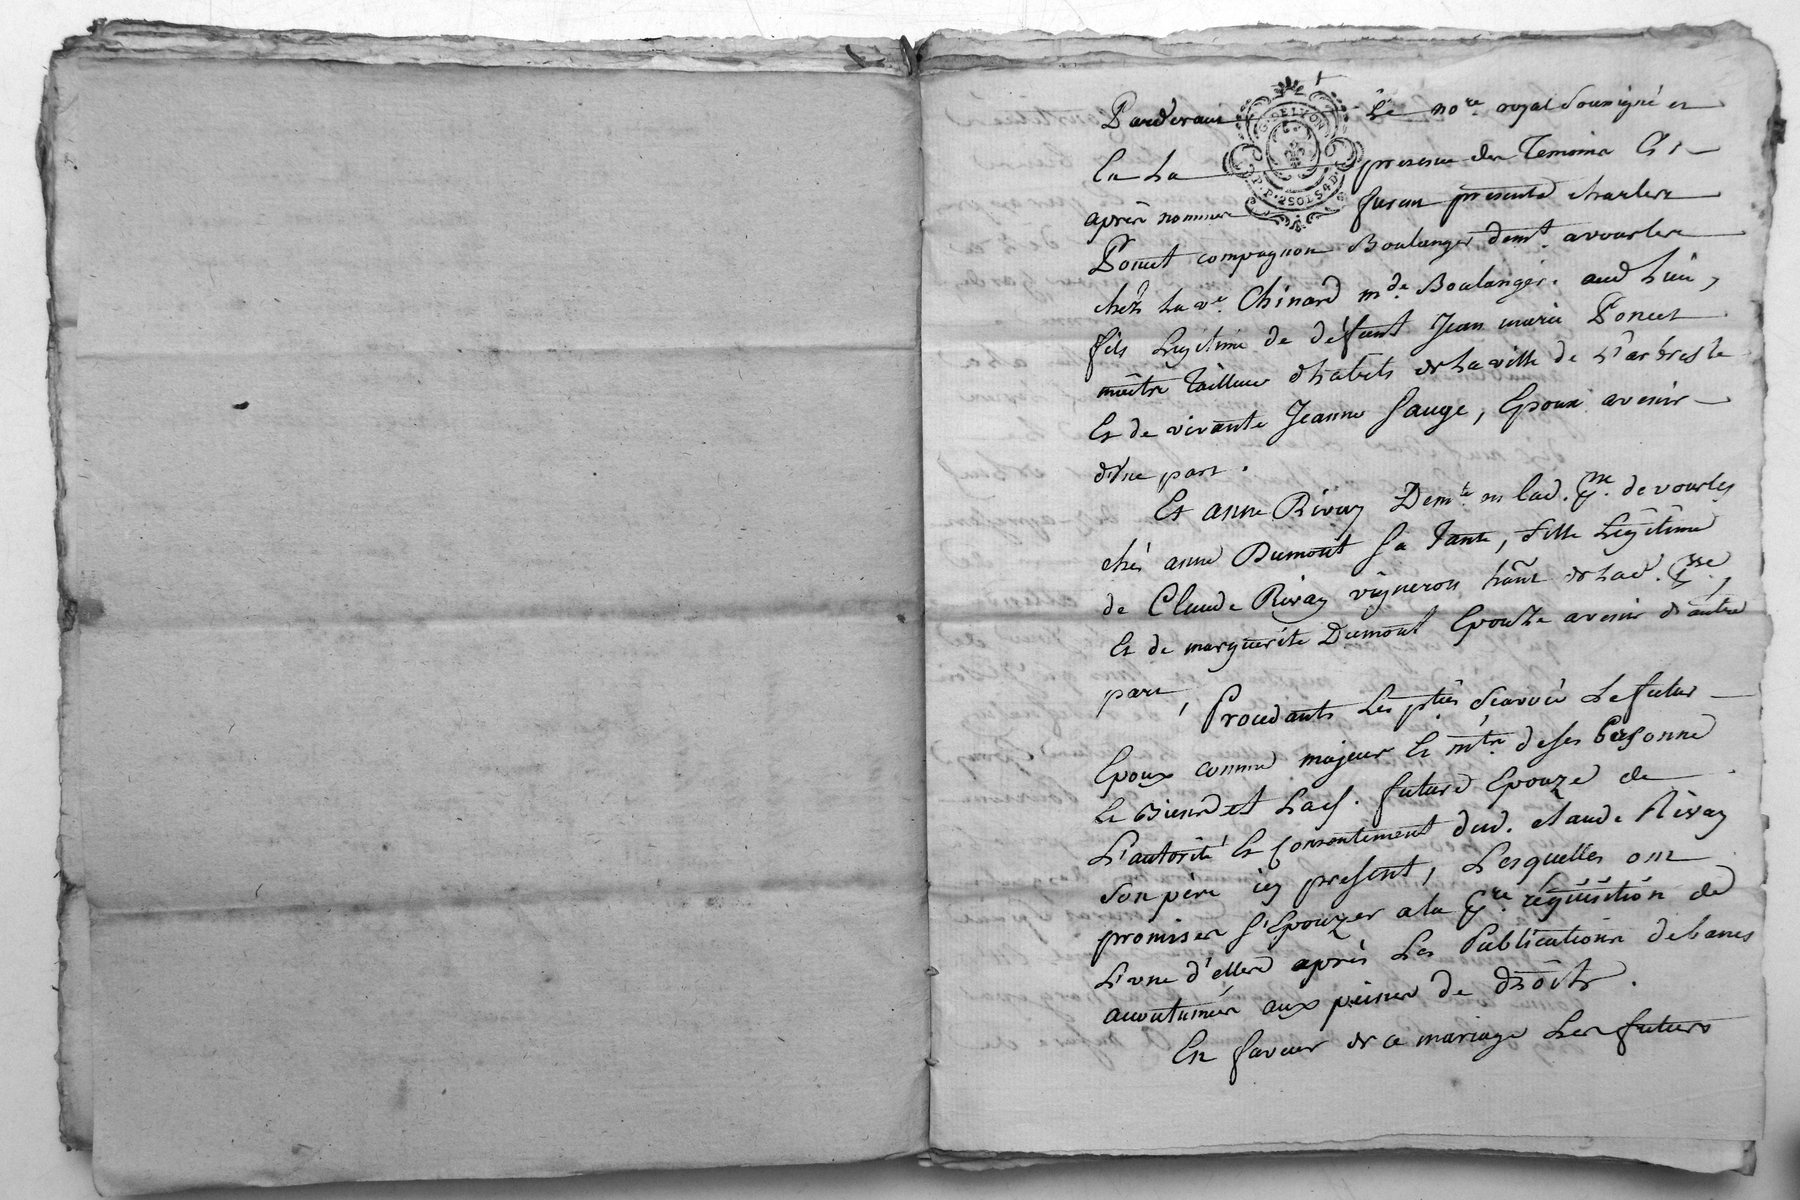 G. DE LYON
P.P. 2SOLS4D.
Pardevant Le no.re royal soussigné et
En La presence des Temoins Cy
après nommés furent présents charles
Poncet compagnon Boulanger dem.t a vourles
chez La v.e Chinard m.de Boulangér. aud Lieu,
fils Légitime de défunt Jean marie Poncet
maître Tailleur d'habits de La ville de L'arbresle
Et de vivante Jeanne Sauge, Epoux avenir
d'Une part.
Et anne Rivay Dem.te en lad. p.sse de vourles
chés anne Dumont sa Tante, fille Légitime
de Claude Rivay vigneron hãnt de Lad. p.sse,
Et de marguerite Dumont Epouze avenir d'autre
part,
Procedants Les pties sçavoir Le futur
Epoux comme majeur Et mtre de ses Personne
Et Biens et Lad. future Epouze de
L'autorité Et Consentement dud. claude Rivay
son père icy present, Lesquelles ont
promis s'Epouzer a la p.re réquisition de
L'une d'elles après Les Publications de bancs
accoutumées aux peines de droits.
En faveur de ce mariage Les futurs